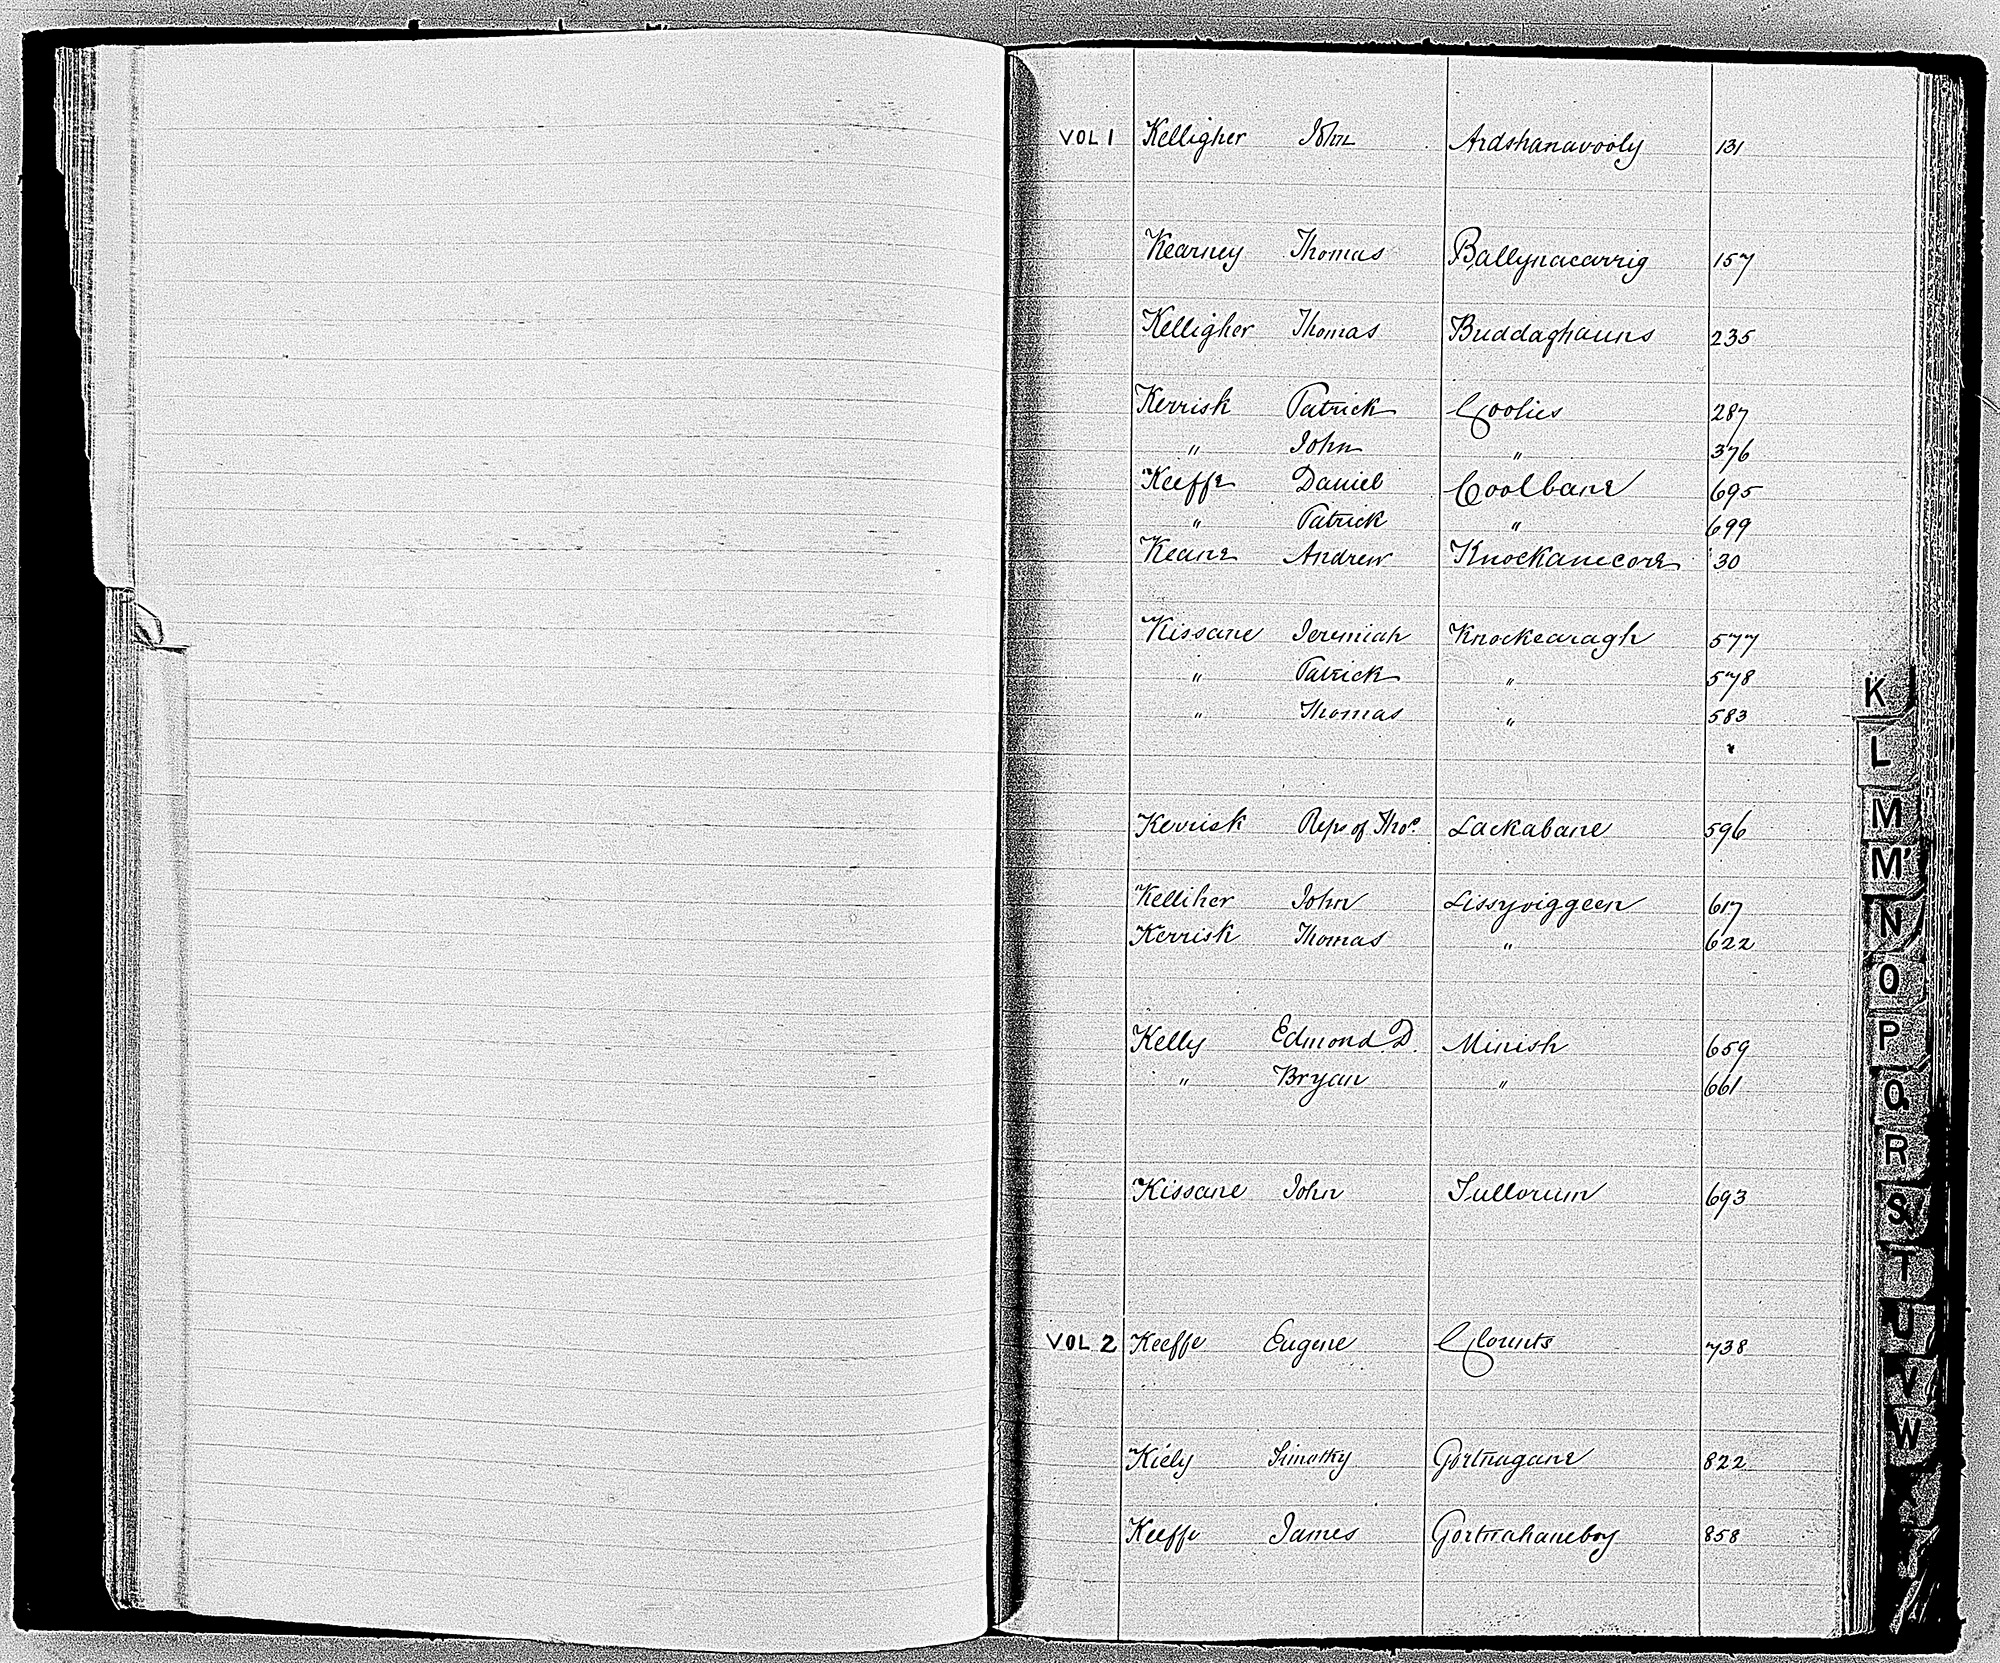 VOL 1 Kelligher John Ardshanavooly 131
Kearney Thomas Ballynacarrig 157
Kelligher Thomas Buddaghauns 235
Kerrisk Patrick Coolies 287
" John " 376
Keeffe Daniel Coolbane 695
" Patrick " 699
Keane Andrew Knockanecore 30
Kissane Jeremiah Knockearagh 577
" Patrick " 578
" Thomas " 583
Kerrisk Reps of Thos. Lackabane 596
Kelliher John Lissyviggeen 617
Kerrisk Thomas " 622
Kelly Edmond D. Minish 659
" Bryan " 661
Kissane John Tullorum 693
VOL 2 Keeffe Eugene Clounts 738
Kiely Timothy Gortnagane 822
Keeffe James Gortnahaneboy 858
K
L
M
M'
N
O
P
Q
R
S
T
U
V
W